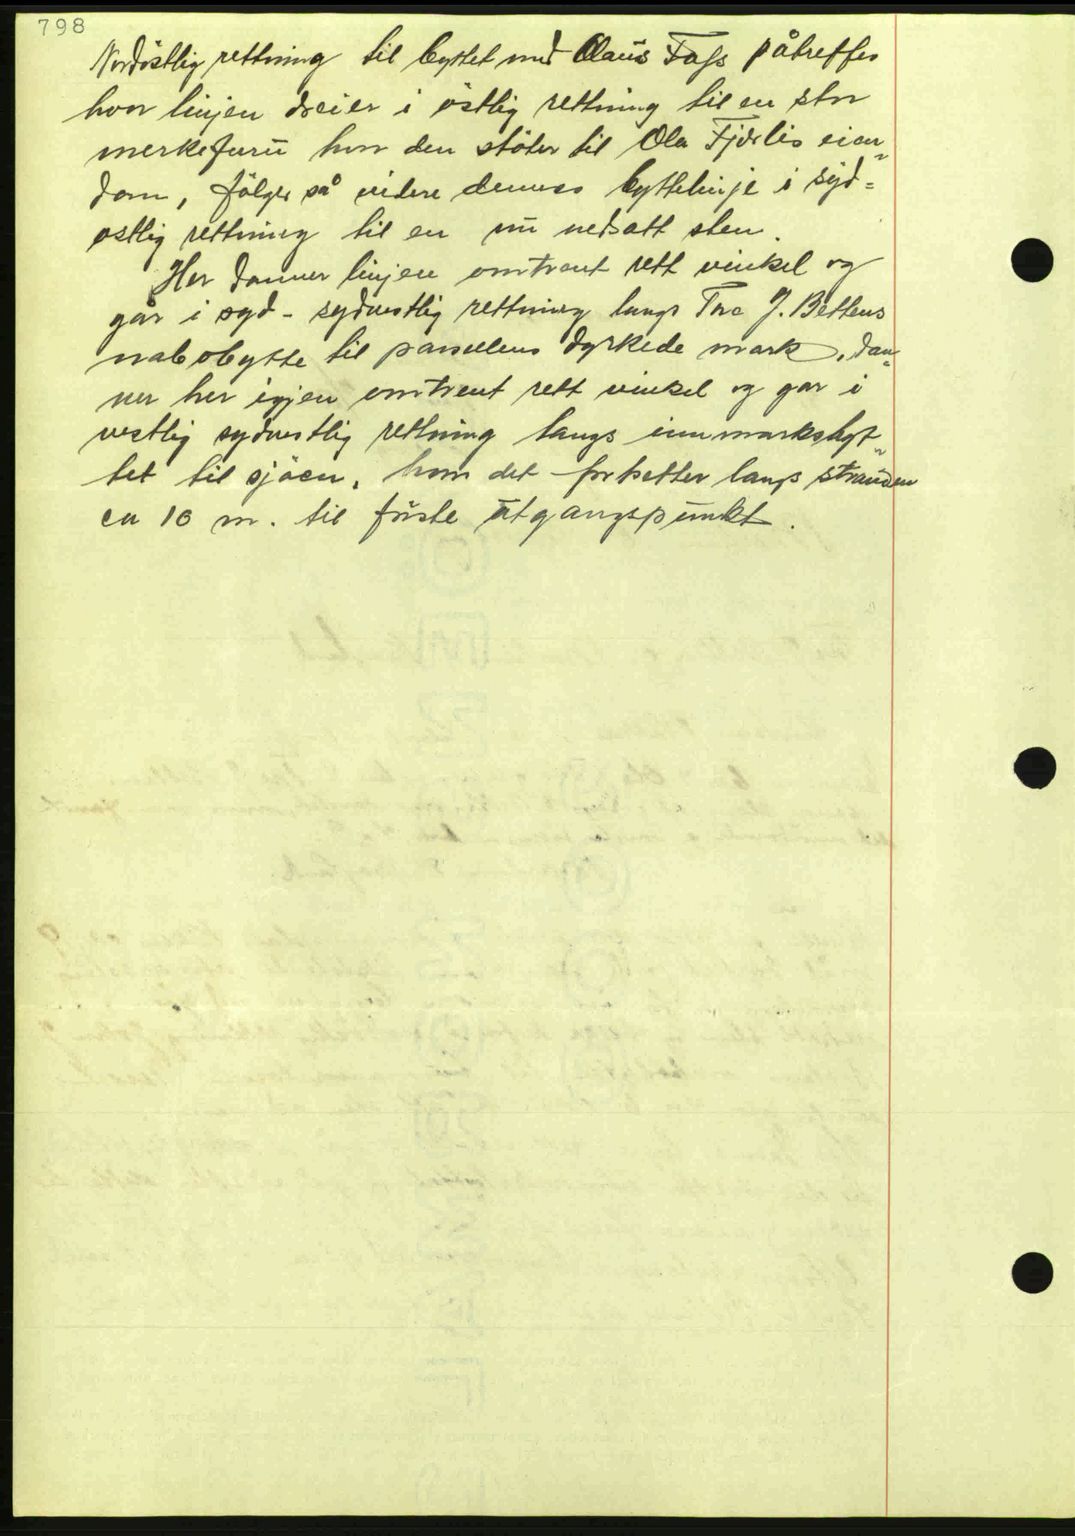 798
Nordöstlig rettning til byttet med Olaus Foss påtreffes
hvor linjen dreier i östlig rettning til en stor
merkefuru hvor den stöter til Ola Fjörlis eien-
dom, fölger så videre dennes byttelinje i syd-
ostlig rettning til en nu nedsatt sten.
Her danner linjen omtrent rett vinkel og
går i syd-sydvestlig rettning langs Tore J. Bettens
nabobytte til parsellens dyrkede mark, dan-
ner her igjen omtrent rett vinkel og går i
vestlig sydvestlig rettning langs innmarksbyt-
tet til sjöen, hvor det fortsetter langs stranden
ca 10 m. til förste utgangspunkt.